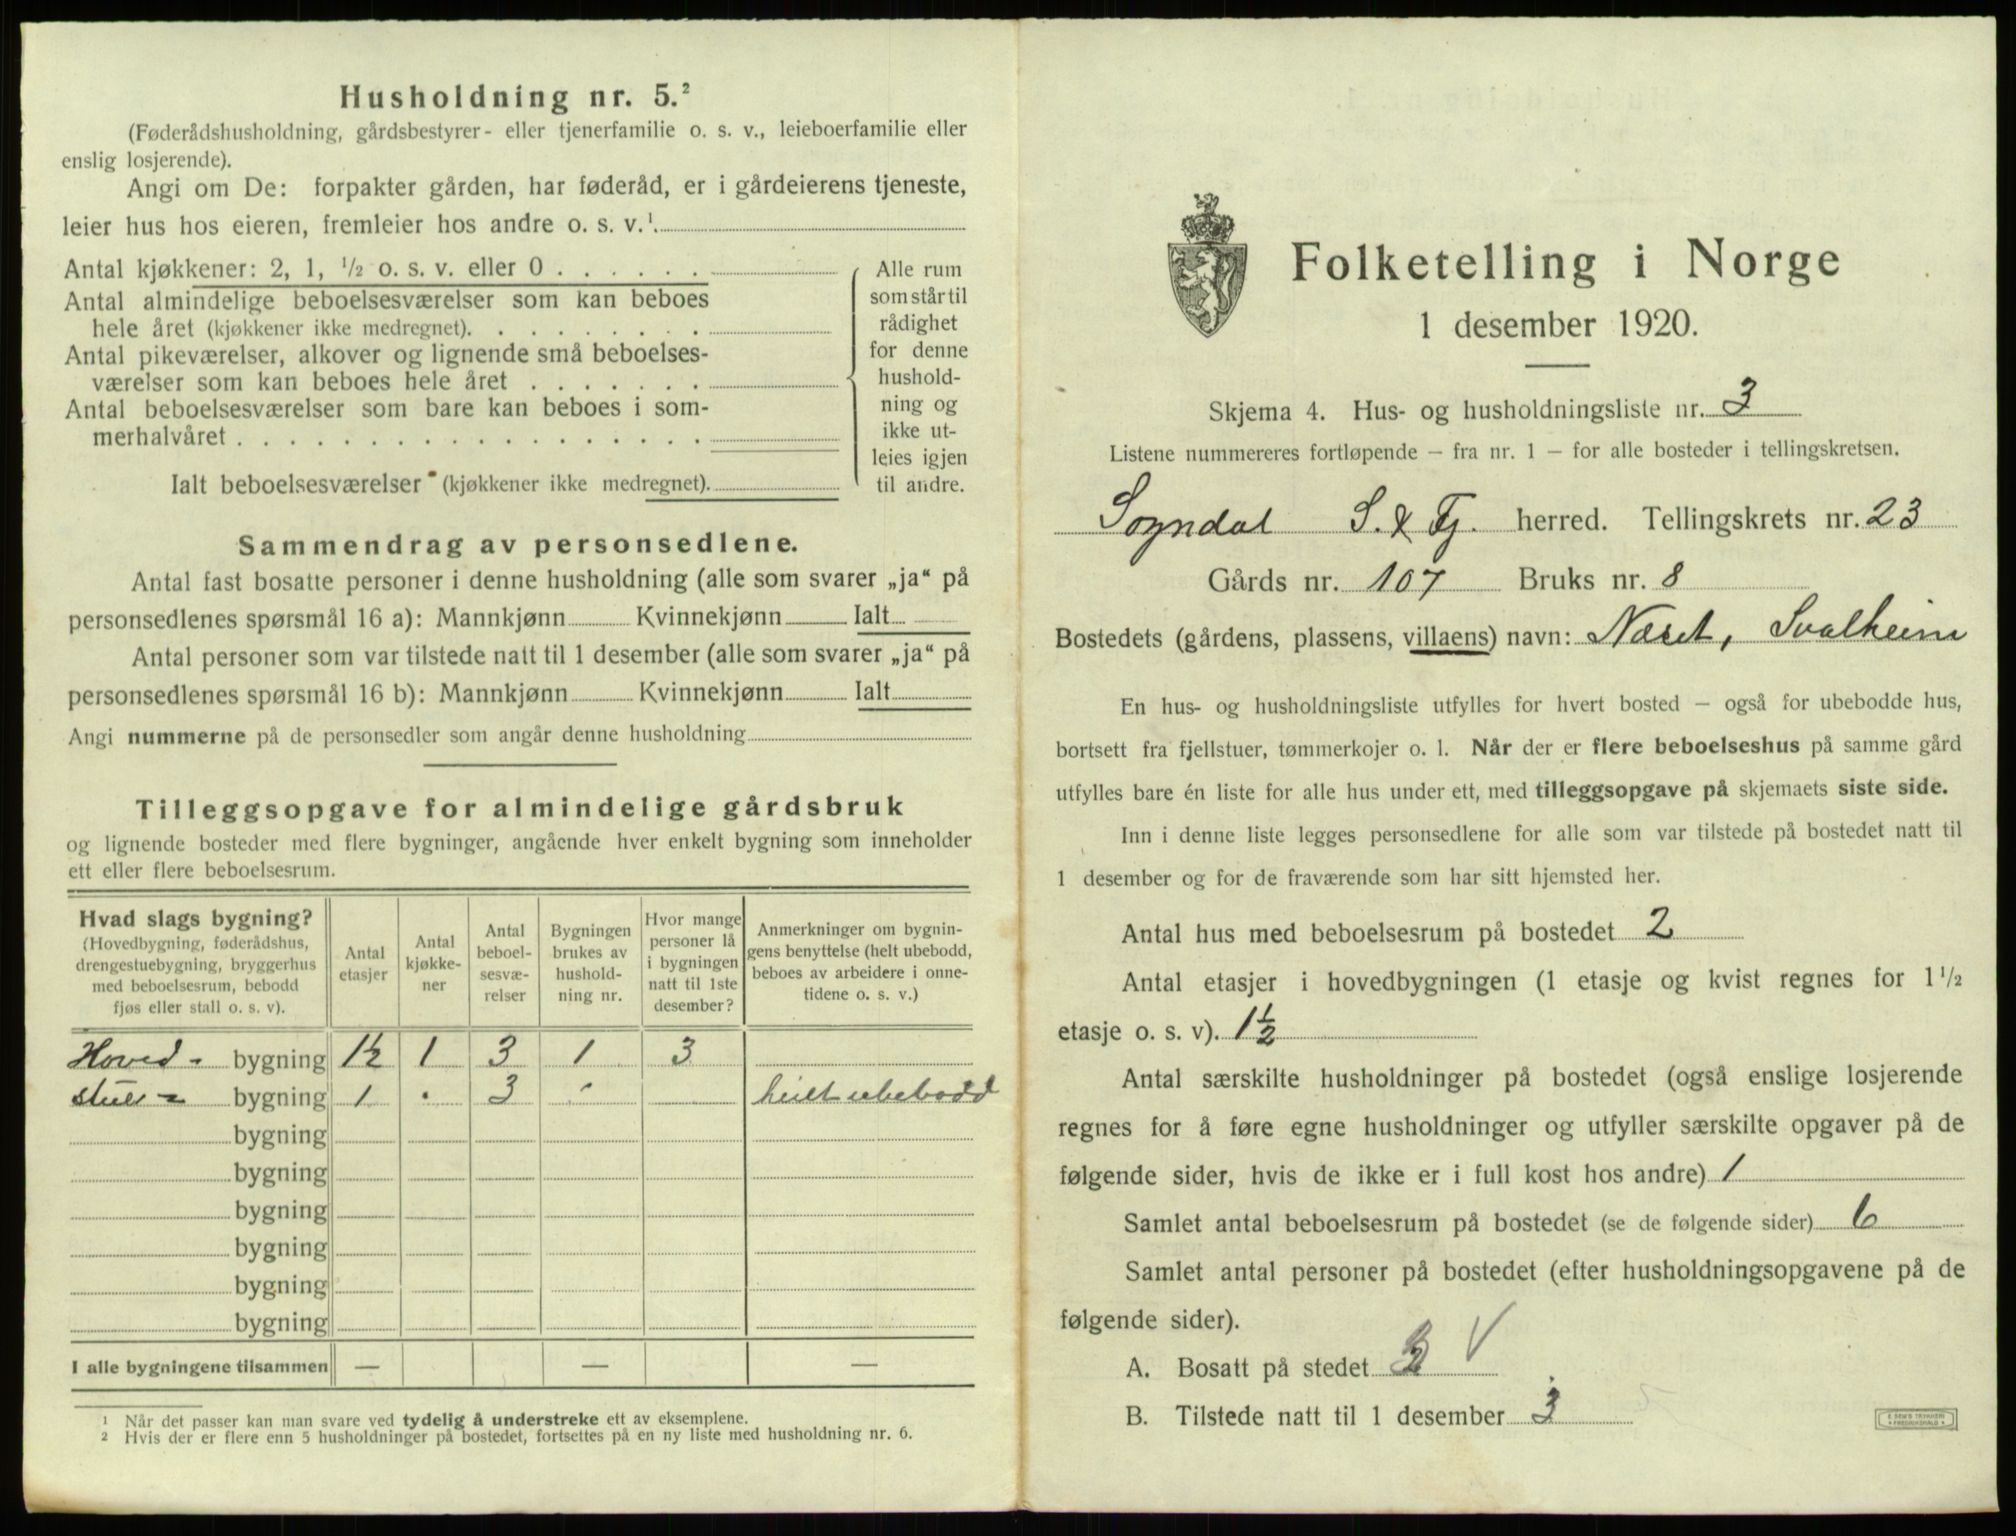 Husholdning nr. 5.²
(Føderådshusholdning, gårdsbestyrer- eller tjenerfamilie o. s. v., leieboerfamilie eller
enslig losjerende).
Angi om De: forpakter gården, har føderåd, er i gårdeierens tjeneste,
leier hus hos eieren, fremleier hos andre o. s. v.¹
Antal kjøkkener: 2, 1, ½ o. s. v. eller 0 . . . . . .
Antal almindelige beboelsesværelser som kan beboes
hele året (kjøkkener ikke medregnet). . . . . . . . .
Antal pikeværelser, alkover og lignende små beboelses-
værelser som kan beboes hele året . . . . . . .
Antal beboelsesværelser som bare kan beboes i som-
merhalvåret . . . . . . . . . . . . . . . . . .
Ialt beboelsesværelser (kjøkkener ikke medregnet).
Alle rum
som står til
rådighet
for denne
hushold-
ning og
ikke ut-
leies igjen
til andre.
Sammendrag av personsedlene.
Antal fast bosatte personer i denne husholdning (alle som svarer „ja“ på
personsedlenes spørsmål 16 a): Mannkjønn Kvinnekjønn Ialt
Antal personer som var tilstede natt til 1 desember (alle som svarer „ja“ på
personsedlenes spørsmål 16 b): Mannkjønn Kvinnekjønn Ialt
Angi nummerne på de personsedler som angår denne husholdning
Tilleggsopgave for almindelige gårdsbruk
og lignende bosteder med flere bygninger, angående hver enkelt bygning som inneholder
ett eller flere beboelsesrum.
Hvad slags bygning?
(Hovedbygning, føderådshus,
drengestuebygning, bryggerhus
med beboelsesrum, bebodd
fjøs eller stall o. s. v).
Antal
etasjer
Antal
kjøkke-
ner
Antal
beboel-
sesvæ-
relser
Bygningen
brukes av
hushold-
ning nr.
Hvor mange
personer lå
i bygningen
natt til 1ste
desember?
Anmerkninger om bygnin-
gens benyttelse (helt ubebodd,
beboes av arbeidere i onne-
tidene o. s. v.)
Hoved- bygning 1½ 1 3 1 3
stue- bygning 1 · 3 · heilt ubebodd
bygning
bygning
bygning
bygning
bygning
bygning
I alle bygningene tilsammen — — —
¹ Når det passer kan man svare ved tydelig å understreke ett av eksemplene.
² Hvis der er flere enn 5 husholdninger på bostedet, fortsettes på en ny liste med husholdning nr. 6.
Folketelling i Norge
1 desember 1920.
Skjema 4. Hus- og husholdningsliste nr. 3
Listene nummereres fortløpende — fra nr. 1 — for alle bosteder i tellingskretsen.
Sogndal S. & Fj. herred. Tellingskrets nr. 23
Gårds nr. 107 Bruks nr. 8
Bostedets (gårdens, plassens, villaens) navn: Næset, Svalheim
En hus- og husholdningsliste utfylles for hvert bosted — også for ubebodde hus,
bortsett fra fjellstuer, tømmerkojer o. l. Når der er flere beboelseshus på samme gård
utfylles bare én liste for alle hus under ett, med tilleggsopgave på skjemaets siste side.
Inn i denne liste legges personsedlene for alle som var tilstede på bostedet natt til
1 desember og for de fraværende som har sitt hjemsted her.
Antal hus med beboelsesrum på bostedet 2
Antal etasjer i hovedbygningen (1 etasje og kvist regnes for 1½
etasje o. s. v). 1½
Antal særskilte husholdninger på bostedet (også enslige losjerende
regnes for å føre egne husholdninger og utfyller særskilte opgaver på de
følgende sider, hvis de ikke er i full kost hos andre) 1
Samlet antal beboelsesrum på bostedet (se de følgende sider) 6
Samlet antal personer på bostedet (efter husholdningsopgavene på de
følgende sider).
A. Bosatt på stedet V
B. Tilstede natt til 1 desember 3